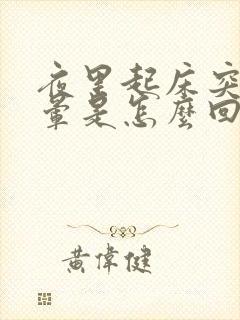 夜里起床突
暈是怎麼回
黃偉健